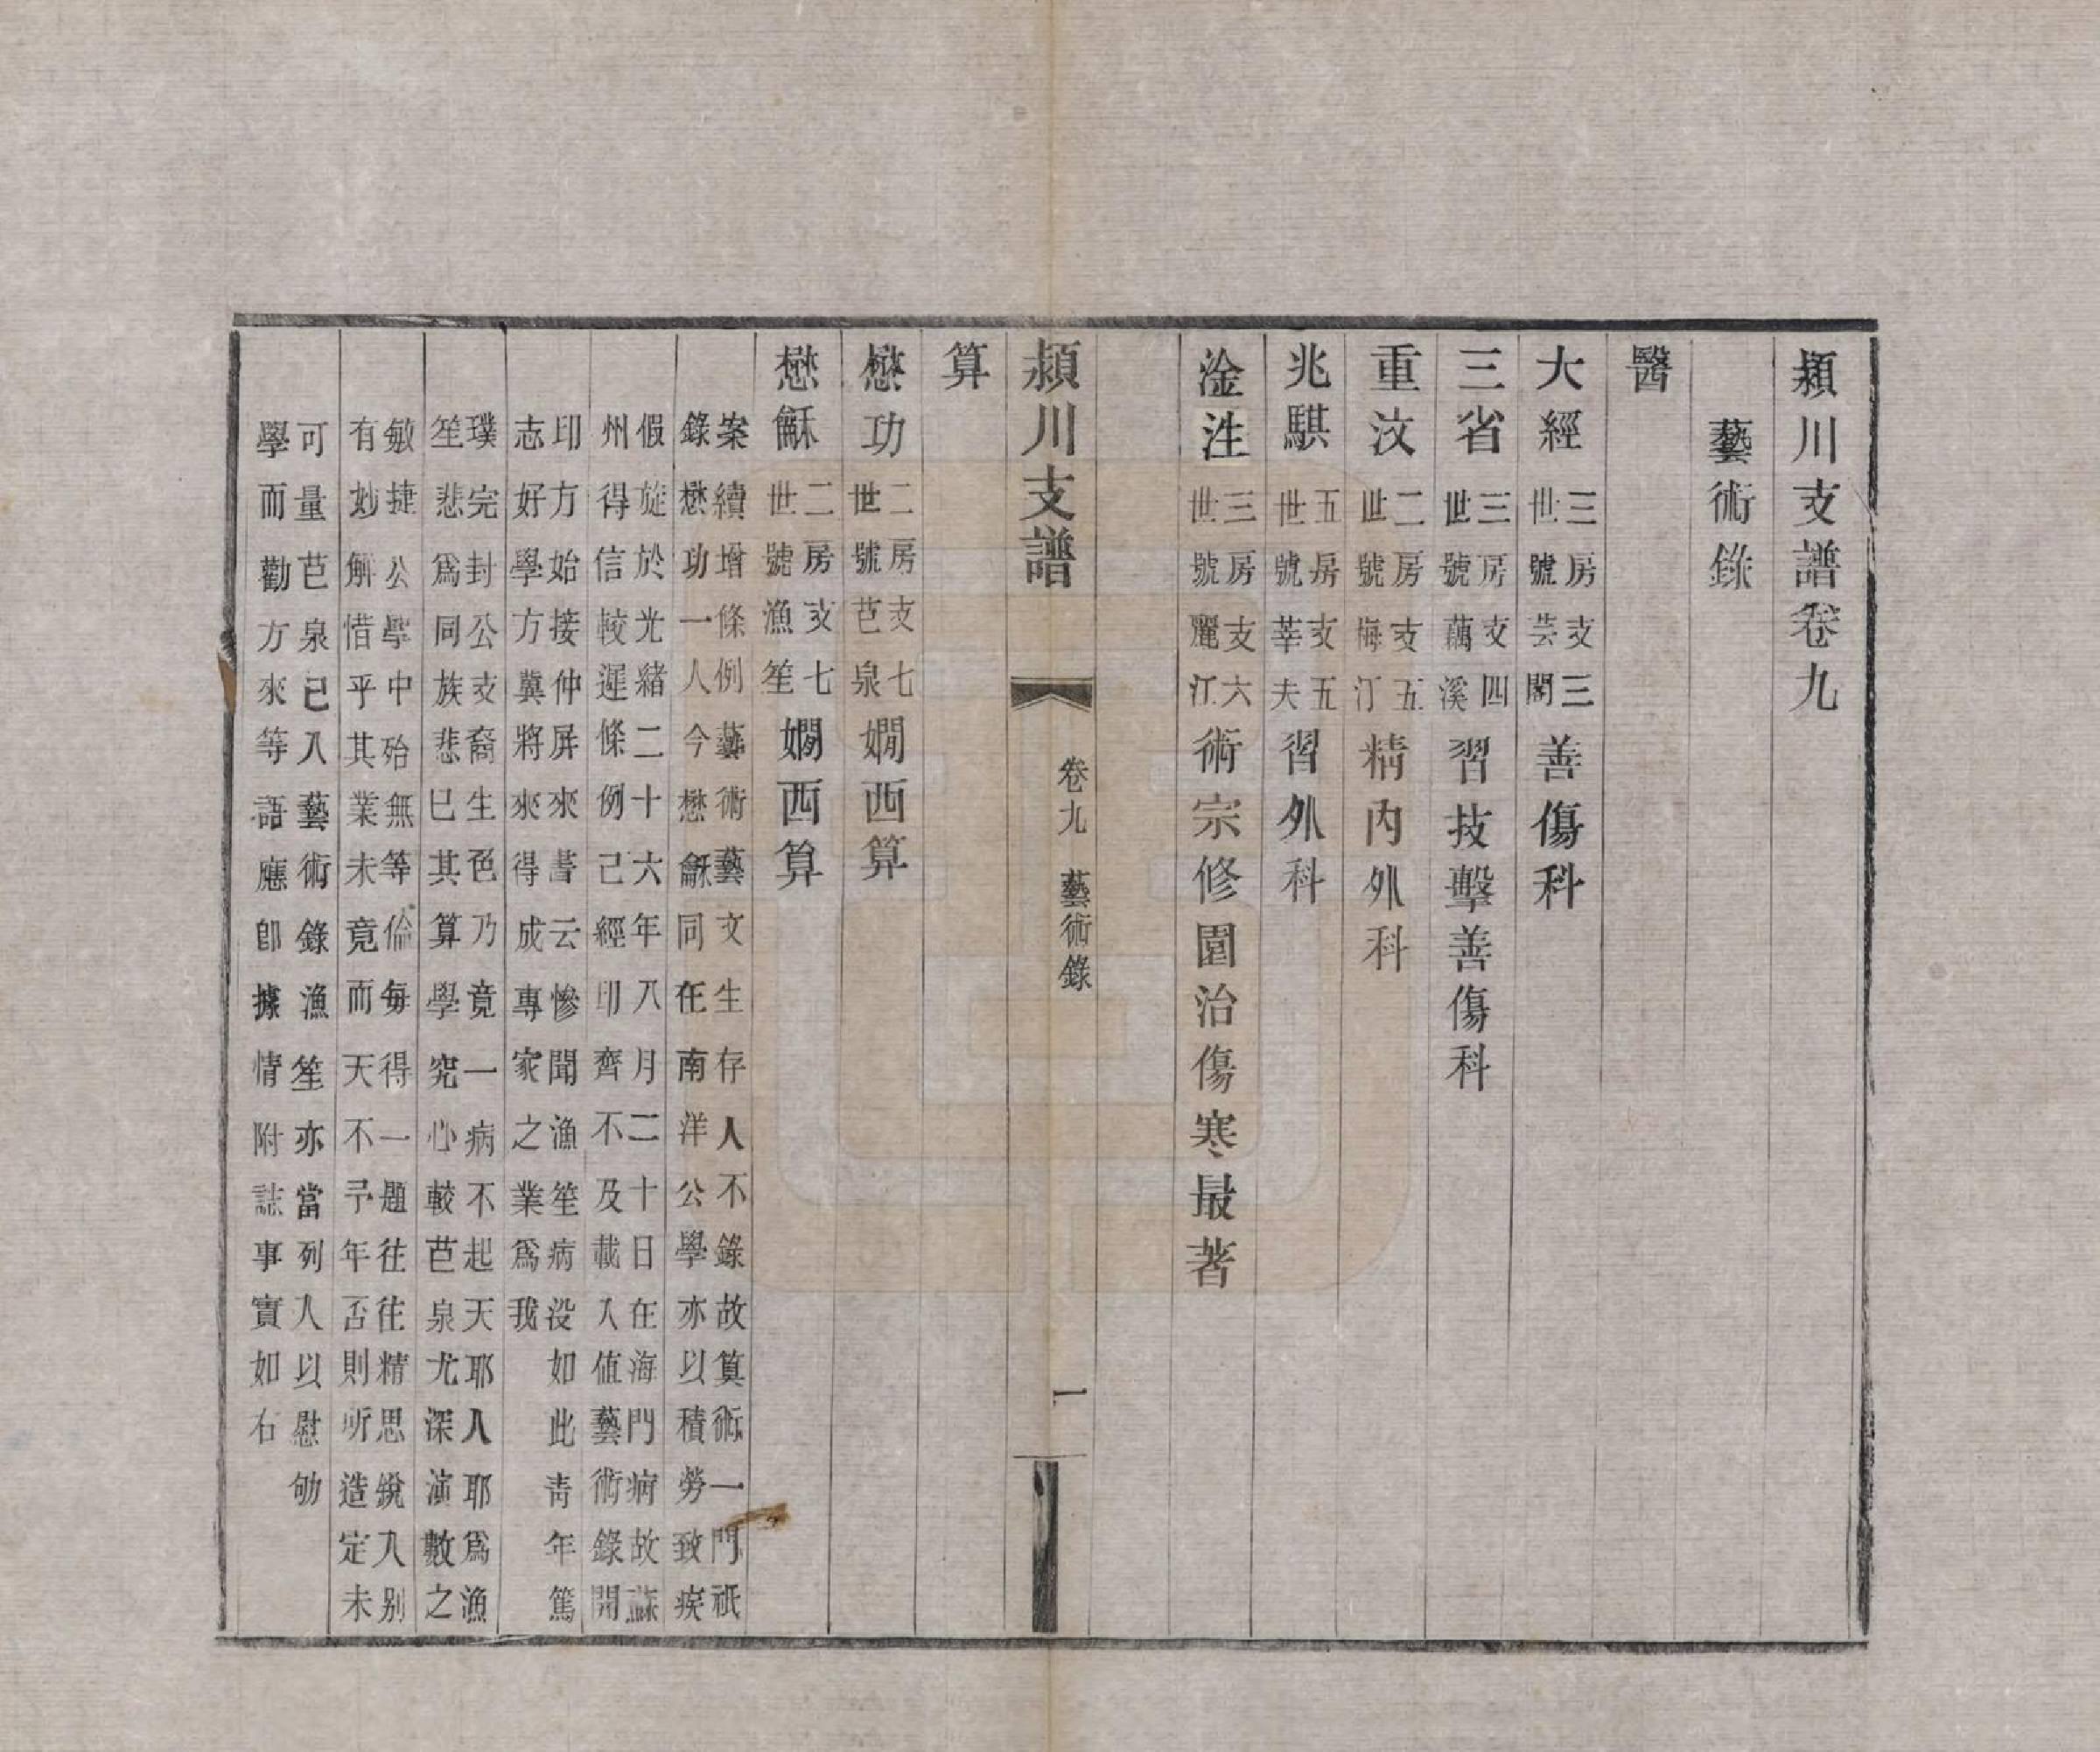 潁川支譜卷九
藝術錄
醫
大經三房支三世號芸閣善傷科
三省三房支四世號藕溪習技擊善傷科
重汶二房支五世號梅汀精內外科
兆騏五房支五世號莘夫習外科
淦泩三房支六世號麗江術宗修園治傷寒最著
潁川支譜 卷九 藝術錄 一
算
懋功二房支七世號芭泉嫺西算
懋龢二房支七世號漁笙嫺西算
案續增條例藝術藝文生存人不錄故算術一門祇
錄懋功一人今懋龢同在南洋公學亦以積勞致疾
假旋於光緒二十六年八月二十日在海門病故蘇
州得信較遲條例己經印齊不及載入值藝術錄開
印方始接仲屏來書云慘聞漁笙病没如此青年篤
志好學方冀將來得成專家之業爲我
璞完封公支裔生色乃竟一病不起天耶人耶爲漁
笙悲爲同族悲巳其算學究心較芭泉尤深演數之
敏捷公學中殆無等倫每得一題往往精思銳入别
有妙解惜乎其業未竟而天不予年否則所造定未
可量芭泉已入藝術錄漁笙亦當列入以慰劬
學而勸方來等語應卽據情附誌事實如右